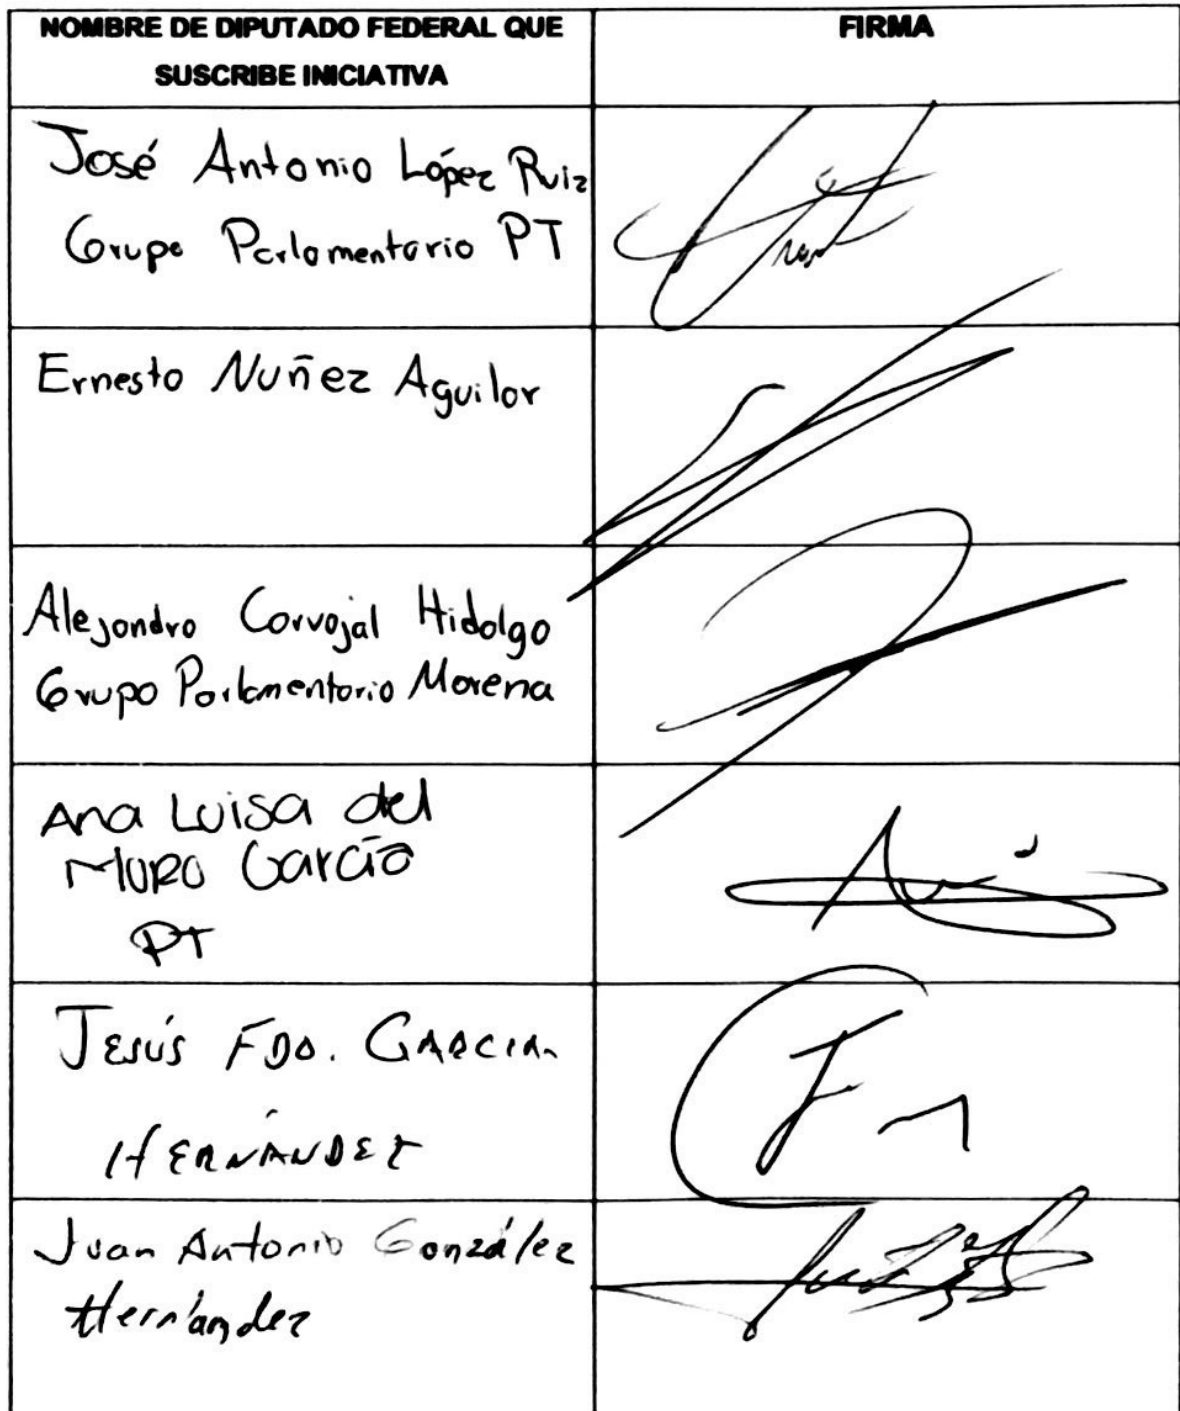 NOMBRE DE DIPUTADO FEDERAL QUE
SUSCRIBE INICIATIVA
FIRMA
José Antonio López Ruiz
Grupo Parlamentario PT
Ernesto Nuñez Aguilar
Alejandro Carvajal Hidalgo
Grupo Parlamentario Morena
Ana Luisa del
Muro García
PT
JESÚS FDO. GARCIA
HERNÁNDEZ
Juan Antonio González
Hernández